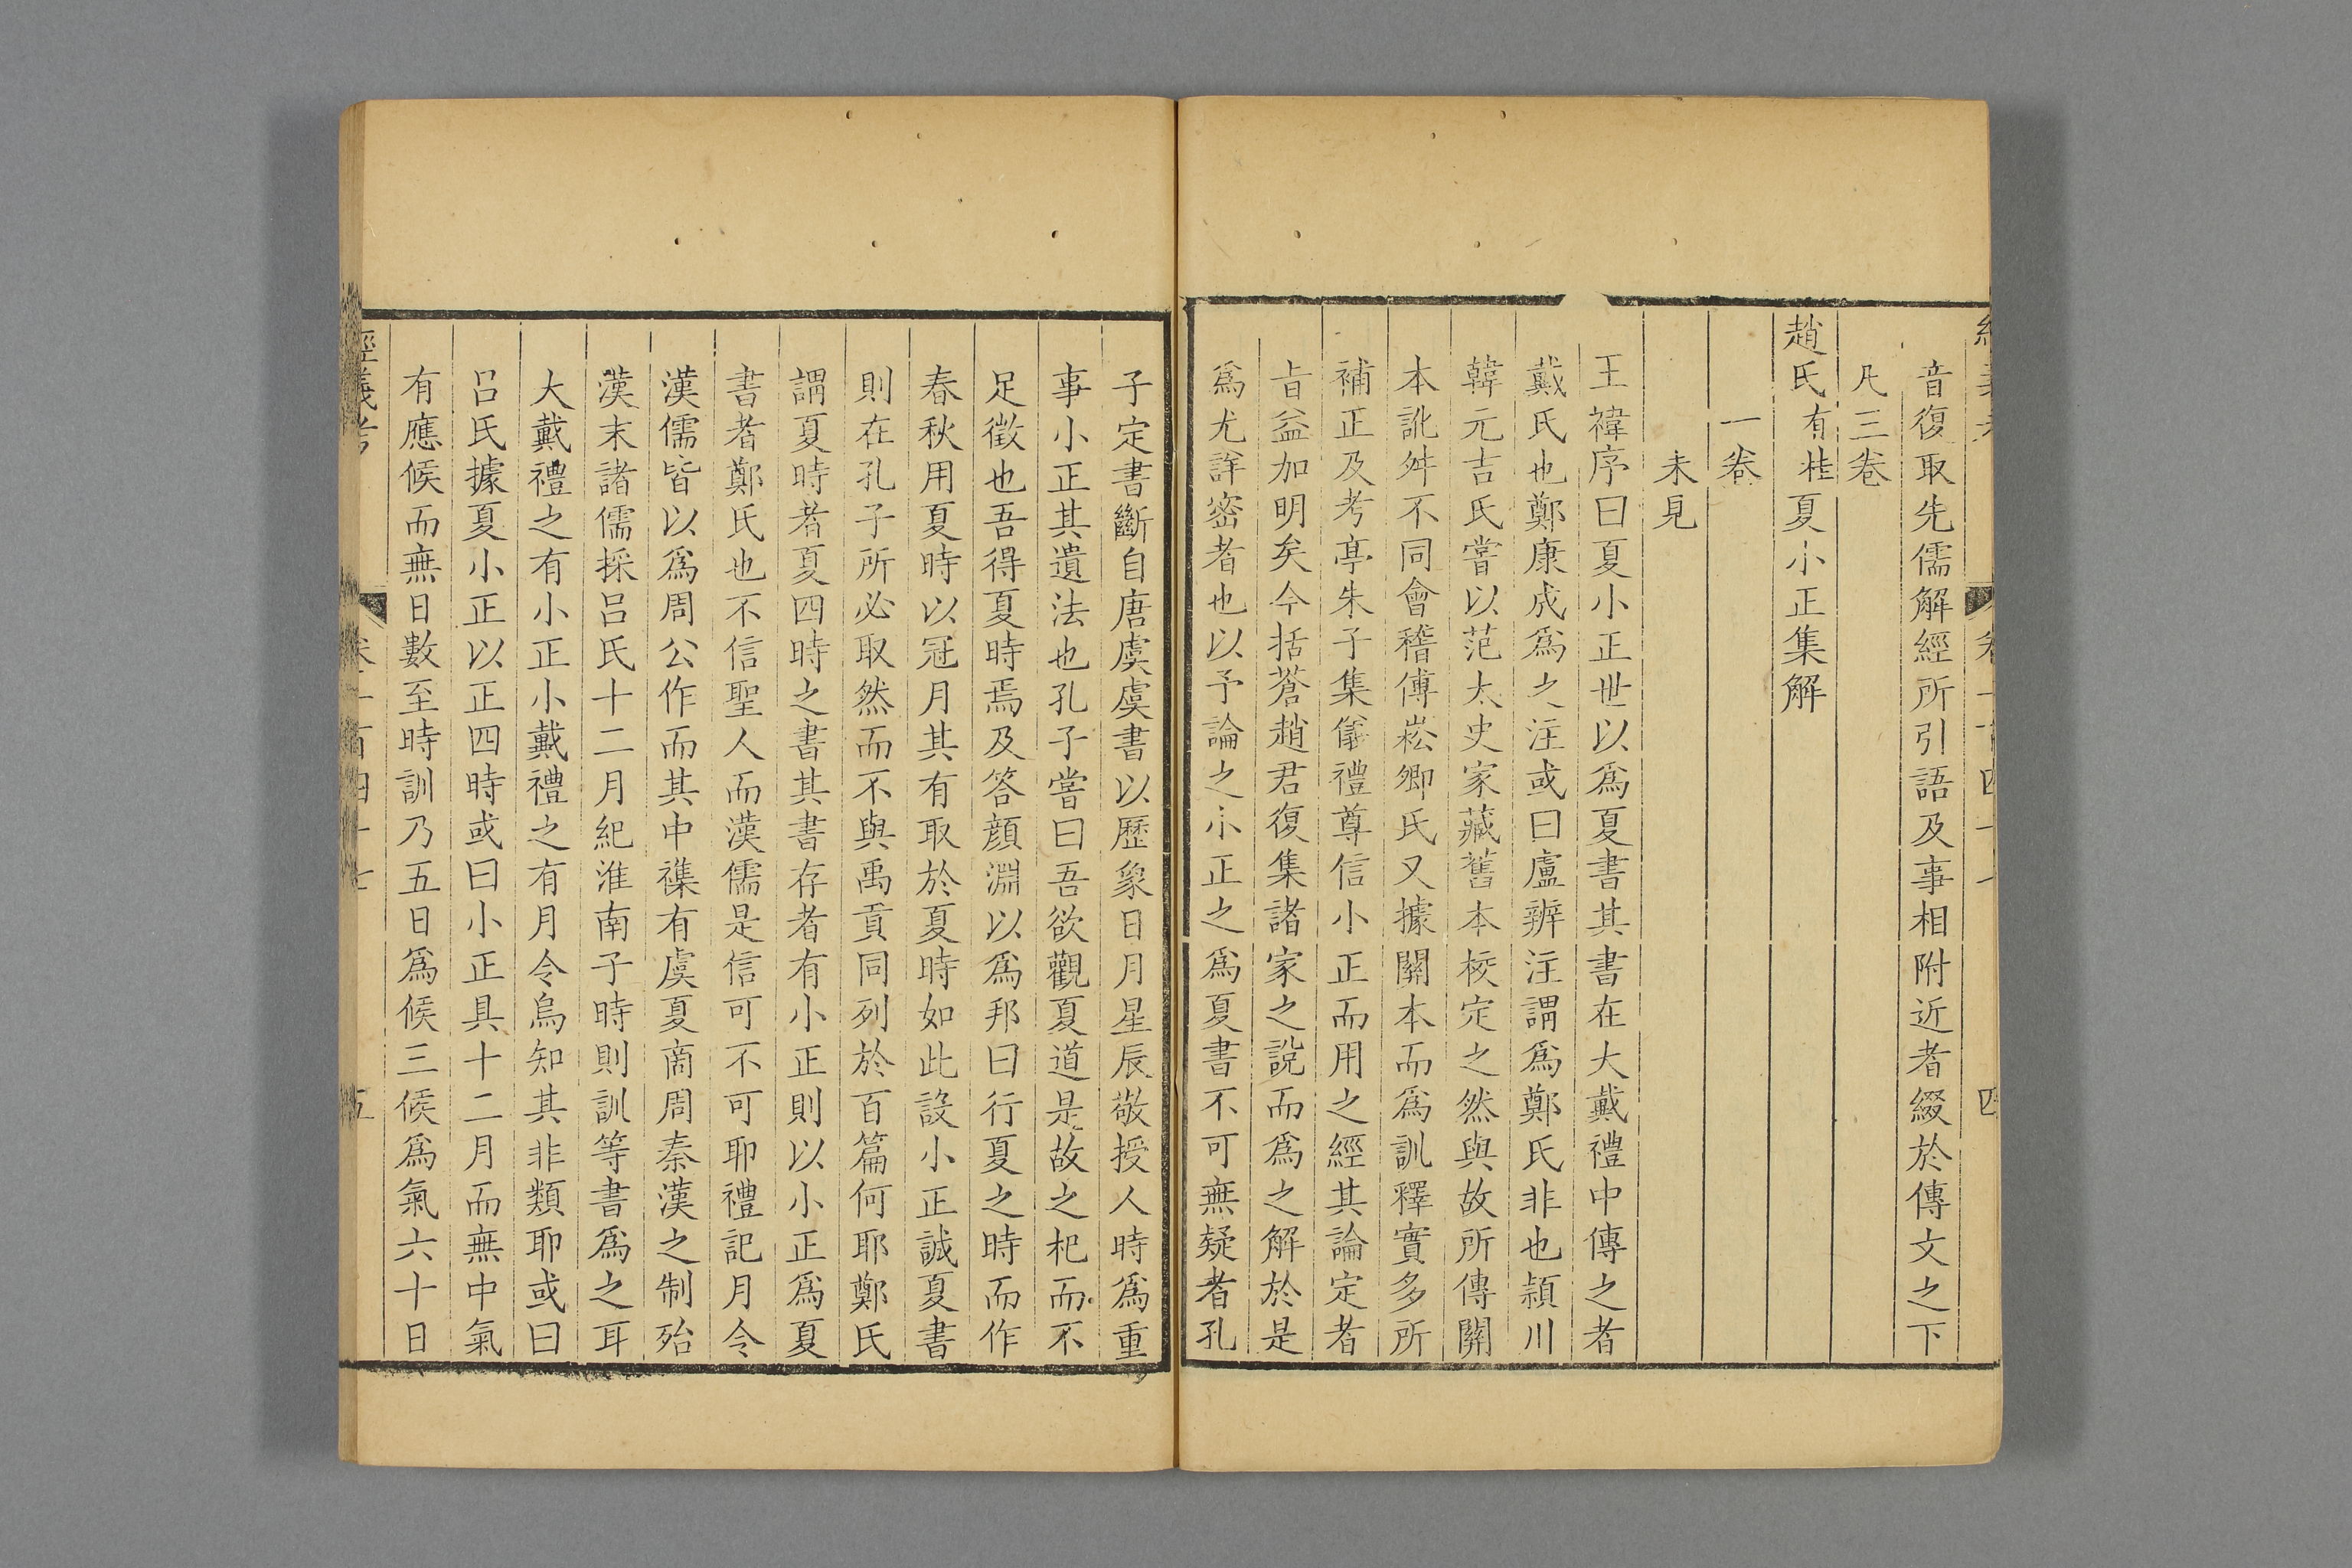 音復取先儒解經所引語及事相附近者綴於傳文之下
凡三卷
趙氏有桂夏小正集解
一卷
未見
王禕序曰夏小正世以爲夏書其書在大戴禮中傳之者
戴氏也鄭康成爲之注或曰盧辨注謂爲鄭氏非也潁川
韓元吉氏嘗以范太史家藏舊本校定之然與故所傳關
本訛舛不同會稽傅崧卿氏又據關本而爲訓釋實多所
補正及考亭朱子集儀禮尊信小正而用之經其論定者
㫖益加明矣今括蒼趙君復集諸家之說而爲之解於是
爲尤詳密者也以予論之小正之爲夏書不可無疑者孔
子定書斷自唐虞虞書以歷象日月星辰敬授人時爲重
事小正其遺法也孔子嘗曰吾欲觀夏道是故之杞而不
足徵也吾得夏時焉及答顔淵以爲邦曰行夏之時而作
春秋用夏時以冠月其有取於夏時如此設小正誠夏書
則在孔子所必取然而不與禹貢同列於百篇何耶鄭氏
謂夏時者夏四時之書其書存者有小正則以小正爲夏
書者鄭氏也不信聖人而漢儒是信可不可耶禮記月令
漢儒皆以爲周公作而其中襍有虞夏商周秦漢之制殆
漢末諸儒採呂氏十二月紀淮南子時則訓等書爲之耳
大戴禮之有小正小戴禮之有月令烏知其非類耶或曰
呂氏據夏小正以正四時或曰小正具十二月而無中氣
有應候而無日數至時訓乃五日爲候三候爲氣六十日
經義考
卷二百四十七
五